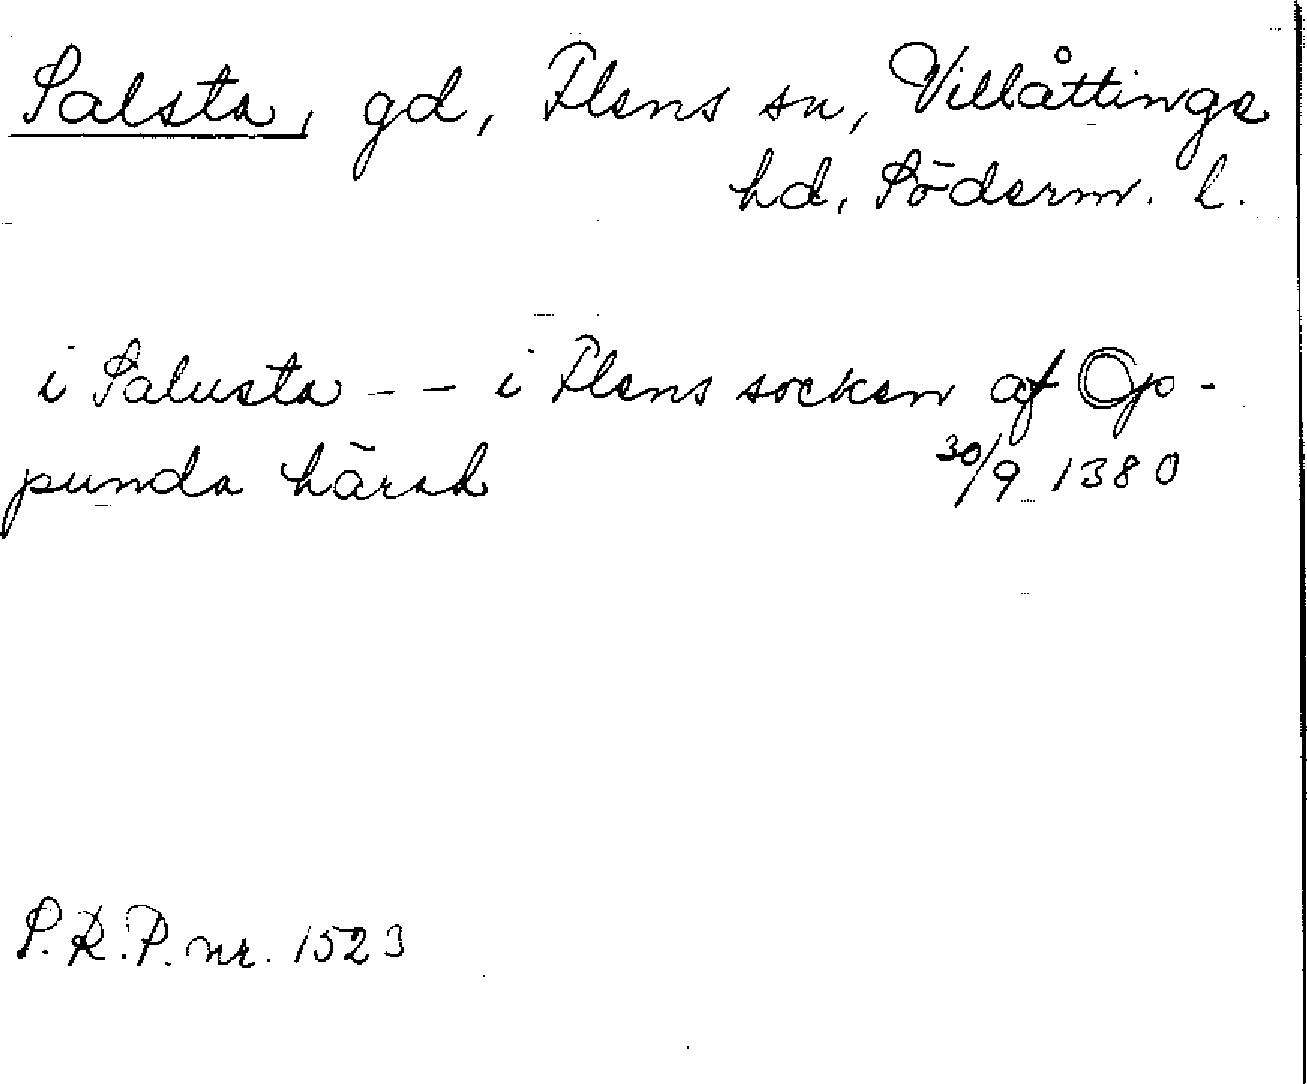 Salsta, gd, Flens sn, Villåttinge
hd, Söderm. l.
i Salusta -- i Flens socken af Op-
punda härad 30/9 1380
S.R.P. nr. 1523